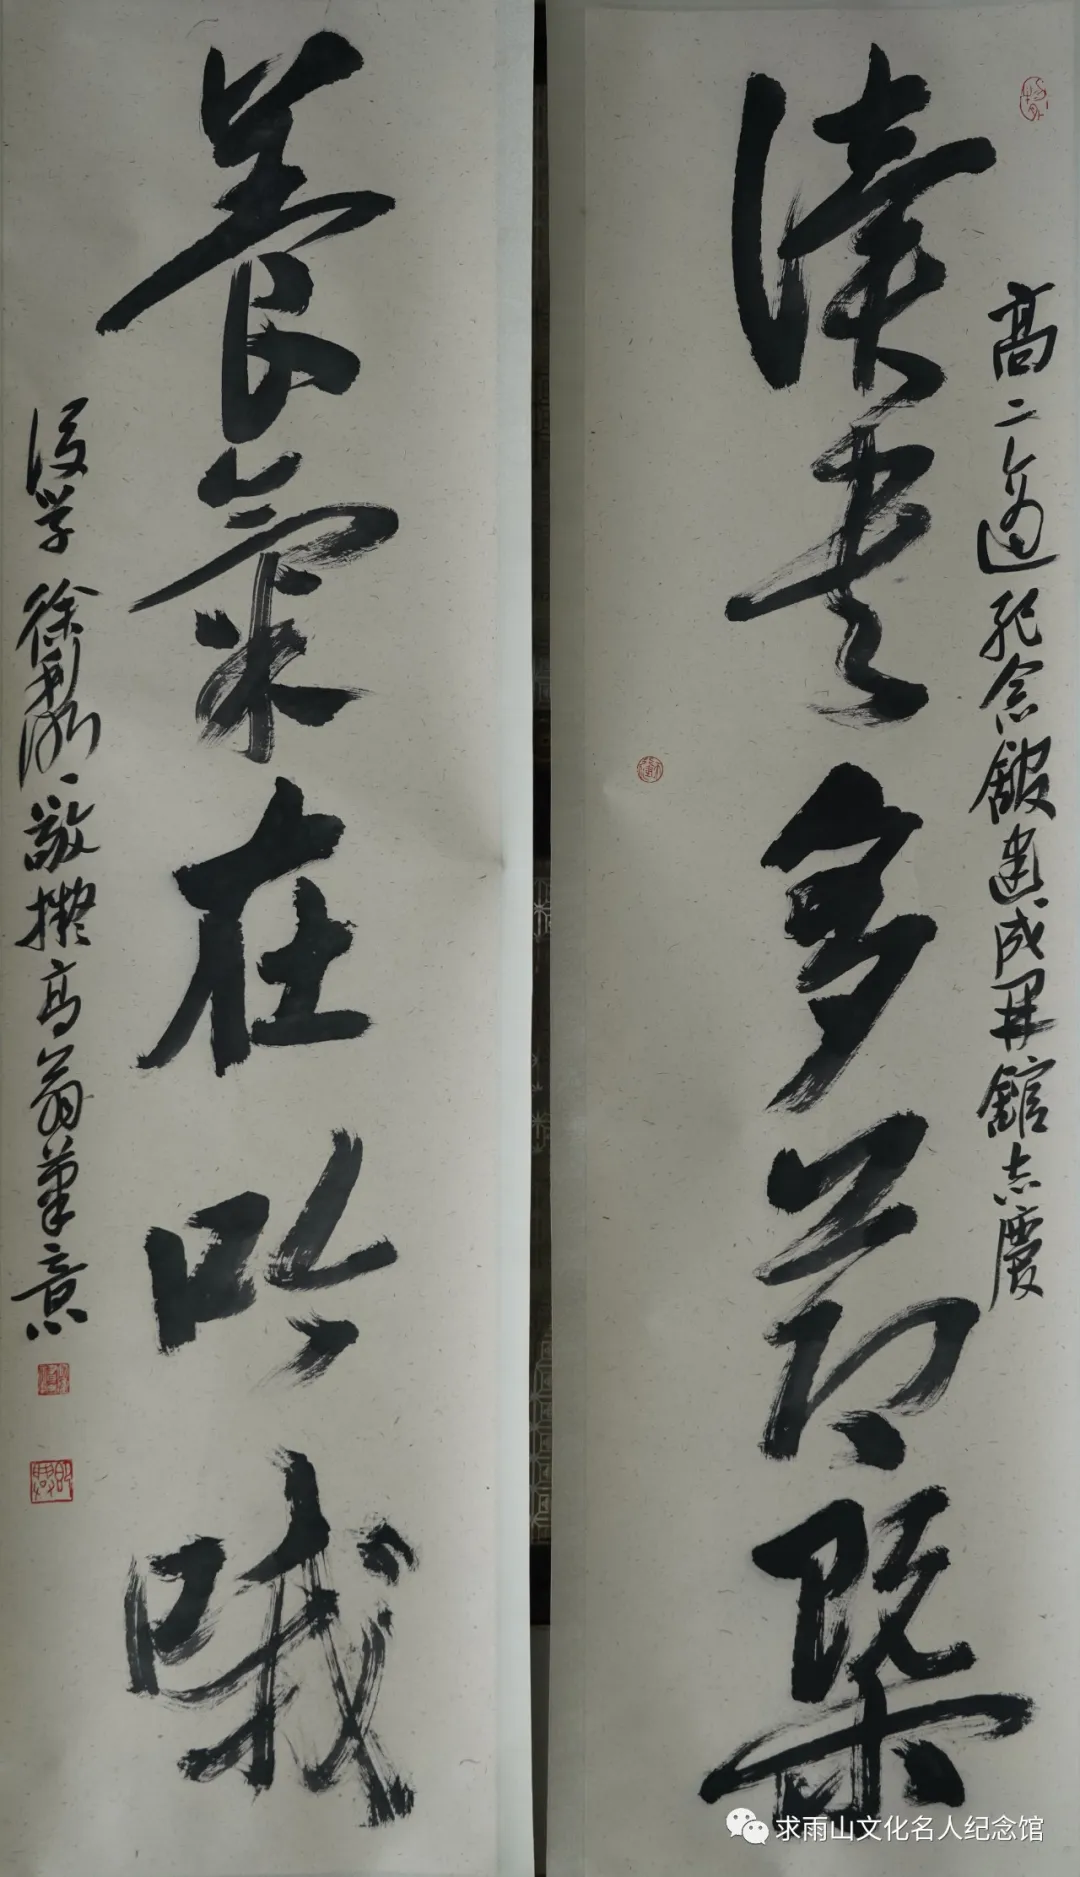 高二适纪念馆建成开馆志庆
读书多节概
养气在吟哦
后学徐利明敬拟高翁笔意
求雨山文化名人纪念馆